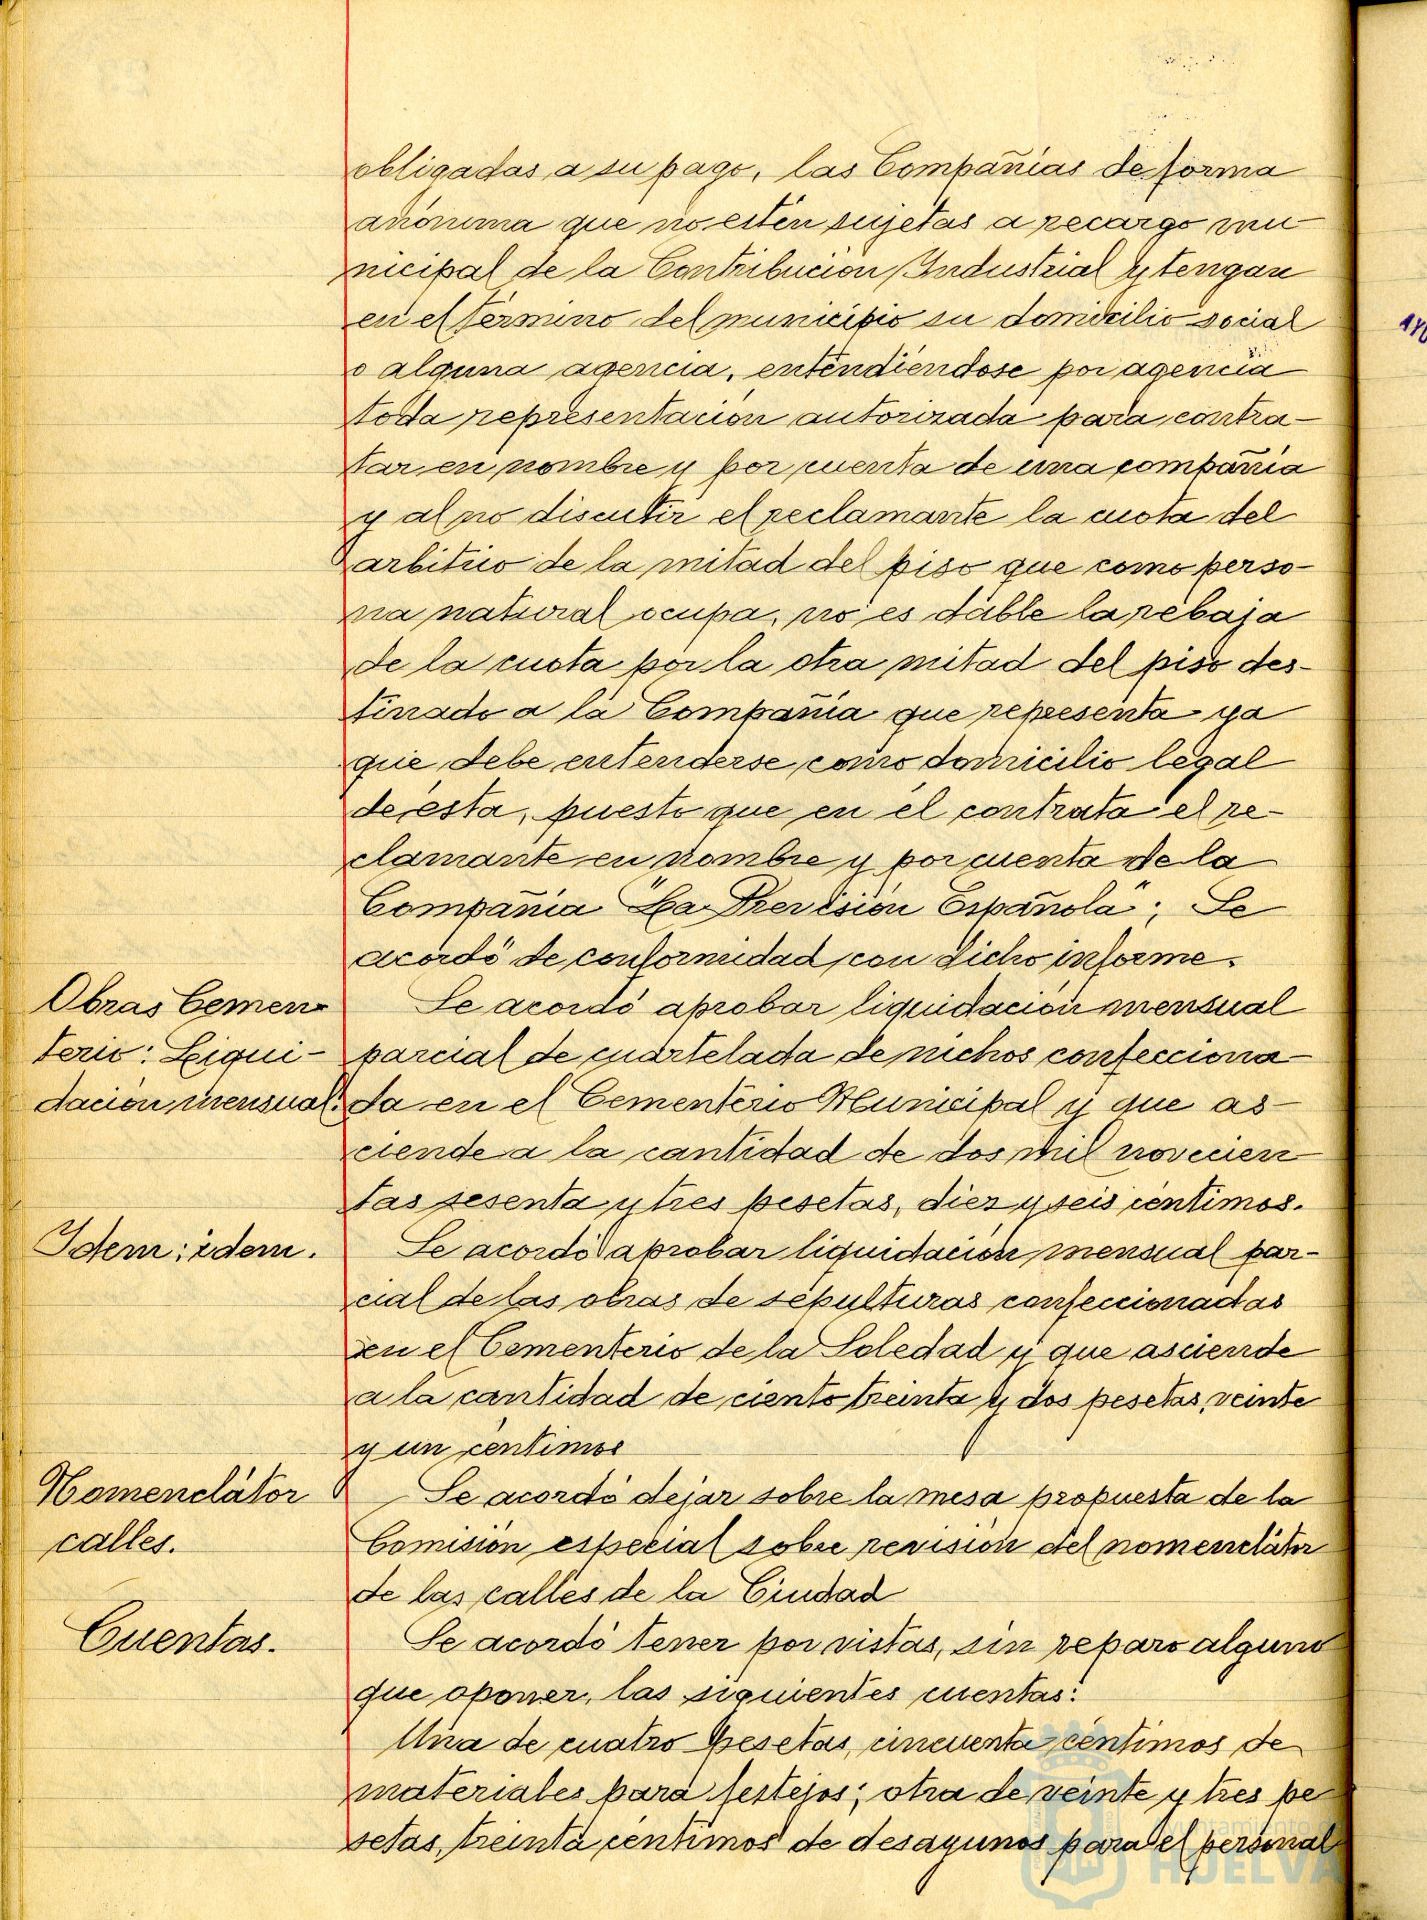 obligadas a su pago, las Compañías de forma
anónima que no estén sujetas a recargo mu-
nicipal de la Contribución Industrial y tengan
en el término del municipio su domicilio social
o alguna agencia, entendiéndose por agencia
toda representación autorizada para contra-
tar en nombre y por cuenta de una compañía
y al no discutir el reclamante la cuota del
arbitrio de la mitad del piso que como perso-
na natural ocupa, no es dable la rebaja
de la cuota por la otra mitad del piso des-
tinado a la Compañía que representa ya
que debe entenderse como domicilio legal
de ésta, puesto que en él contrata el re-
clamante en nombre y por cuenta de la
Compañía "La Previsión Española"; Se
acordó de conformidad con dicho informe.
Obras Cemen-
terio: Liqui-
dación mensual.
Se acordó aprobar liquidación mensual
parcial de cuartelada de nichos confecciona-
da en el Cementerio Municipal y que as-
ciende a la cantidad de dos mil novecien-
tas sesenta y tres pesetas, diez y seis céntimos.
Idem: idem.
Se acordó aprobar liquidación mensual par-
cial de las obras de sepulturas confeccionadas
en el Cementerio de la Soledad y que asciende
a la cantidad de ciento treinta y dos pesetas, veinte
y un céntimos
Nomenclátor
calles.
Se acordó dejar sobre la mesa propuesta de la
Comisión especial sobre revisión del nomenclátor
de las calles de la Ciudad
Cuentas.
Se acordó tener por vistas, sin reparo alguno
que oponer, las siguientes cuentas:
Una de cuatro pesetas, cincuenta céntimos de
materiales para festejos; otra de veinte y tres pe-
setas, treinta céntimos de desayunos para el personal
Ayuntamiento
HUELVA
AYU